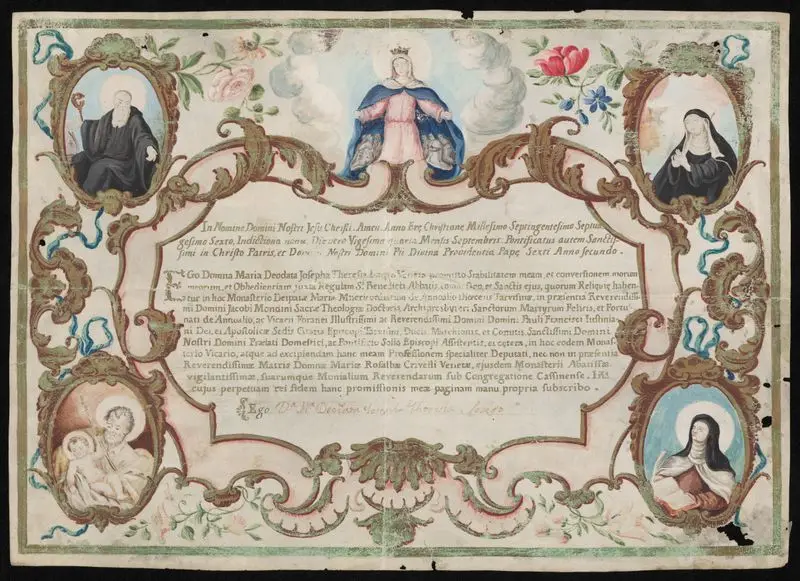 In Nomine Domini Nostri Jesu Christi. Amen. Anno Ere Christiane Millesimo Septingentesimo Septua
gesimo Sexto, Indictione nona, Die vero Vigesima quarta Mensis Septembris. Pontificatus autem Sanctis
simi in Christo Patris, et Domini Nostri Domini Pii Divina Providentia Pape Sexti Anno secundo.
EGo Domna Maria Deodata Josepha Theresia Veneta promitto Stabilitatem meam, et conversionem morum
meorum, et Obbedientiam juxta Regulam S. Benedicti Abbatis, coram Deo, et Sanctis ejus, quorum Reliquie haben
tur in hoc Monasterio Deiparae Mariae de Diocesis Tarvisinae, in praesentia Reverendiss
mi Domini Jacobi Mondini Sacrae Theologiae Doctoris, Archipresbyteri Sanctorum Martyrum Felicis, et Fortu
nati de ac Vicarii Foranei Illustrissimi ac Reverendissimi Domini Domini Pauli Francisci Justinia
ni Dei, et Apostolicae Sedis Gratia Episcopi Tarvisini, Ducis, Marchionis, et Comitis, Sanctissimi Domini
Nostri Domini Praefati Domestici, ac Pontificio Solio Episcopi Assistentis, et cetera, in hoc eodem Monas
terio Vicario, atque ad excipiendam hanc meam Professionem specialiter Deputati, nec non in praesentia
Reverendissimae Matris Domnae Mariae Rosalbae Venetae, ejusdem Monasterii Abatissae
vigilantissimae, suarumque Monialium Reverendarum sub Congregatione Cassinense. In
cujus perpetuam rei fidem hanc promissionis meae paginam manu propria subscribo.
Ego Da. Ma. Deodata Josepha Theresia